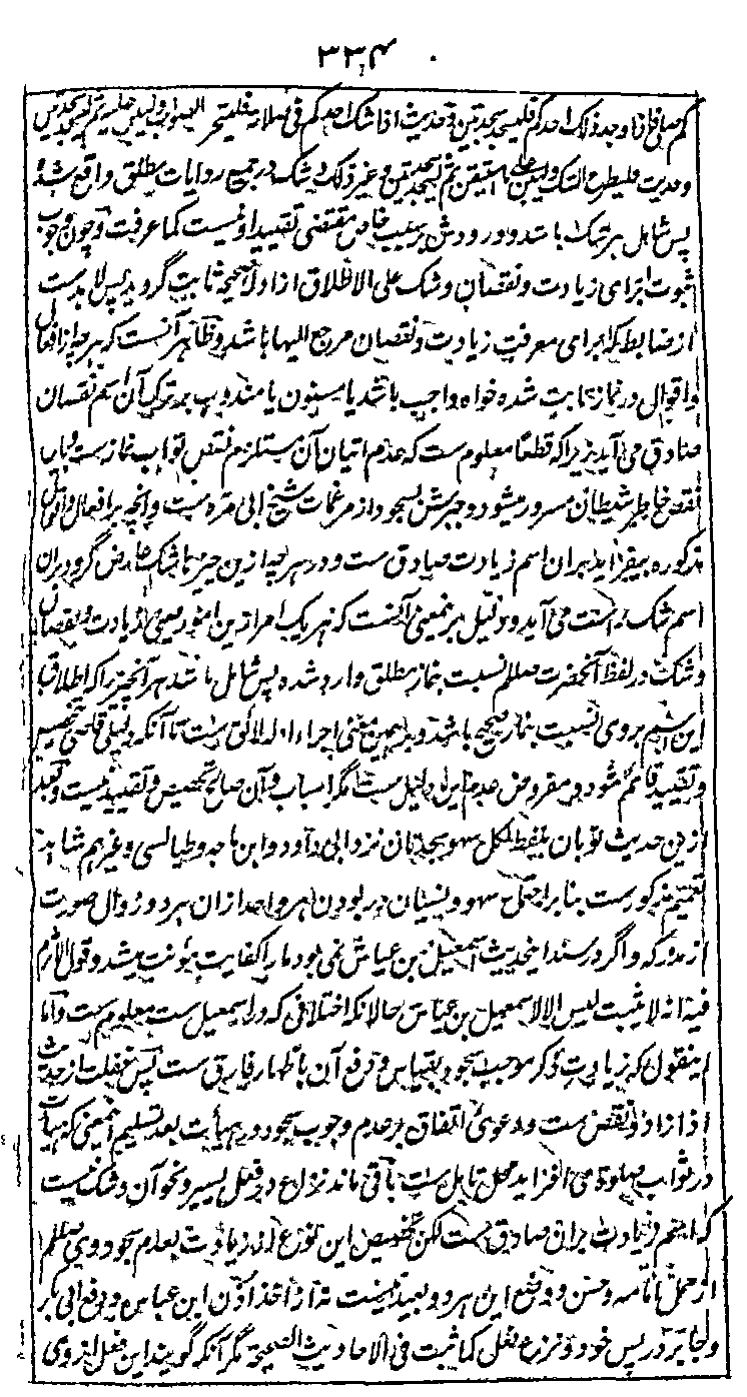 ۳۳۴
کم صلی فاذا وجد ذلک احدکم فلیسجد سجدتین و حدیث اذا شک احدکم فی صلاته فلیتحر الصواب ولیبن علیه ثم لیسجد سجدتین
و حدیث فلیطرح الشک ولیبن علی استیقن ثم لیسجد سجدتین و غیر ذلک و شک در جمیع روایات مطلق واقع شده
پس شامل هر شک باشد و ورودش بر سبب خاص مقتضی تقیید او نیست کما عرفت و چون وجوب
ثبوت برای زیادت و نقصان و شک علی الاطلاق از ادله صحیحه ثابت گردید پس لابد ست
از ضابطه که برای معرفت زیادت و نقصان مرجع الیها باشد و ظاهر آنست که هر چه از افعال
و اقوال در نماز ثابت شده خواه واجب باشد یا مسنون یا مندوب بر ترک آن اسم نقصان
صادق می آید زیرا که قطعا معلوم ست که عدم اتیان آن مستلزم نقص ثواب نماز ست و باین
نقص خاطر شیطان مسرور میشود و جبرش بسجود از مرغمات شیخ ابی مره ست و آنچه بر افعال و اقوال
مذکوره بیفزاید بران اسم زیادت صادق ست و در هر چه ازین چیزها شک عارض گردد بران
اسم شک راست می آید و دلیل بر نمعنی آنست که هر یک امر ازین امور یعنی زیادت و نقصان
و شک در لفظ آنحضرت صللم نسبت بنماز مطلق وارد شده پس شامل باشد هر آنچیز را که اطلاق
این اسم بروی نسبت بنماز صحیح باشد و بر همین معنی اجراء ادله لائق ست تا آنکه دلیلی قاضی تخصیص
و تقیید قائم شود و مفروض عدم این دلیل ست مگر اسباب و آن صالح تخصیص و تقیید نیست و بعد
ازین حدیث ثوبان بلفظ لکل سهو سجدتان نزد ابی داود و ابن ماجه و طیالسی و غیرهم شاهد
تعمیم مذکور ست بنابر احتمال سهو و نسیان در بودن هر واحد ازان هر دو زوال صورت
از مدرکه و اگر در سند این حدیث اسمعیل بن عیاش نمی بود ما را کفایت مؤنت میشد و قول اثرم
فیه انه لا یثبت لیس الا لاسمعیل بن عیاش حالانکه اختلافی که در اسمعیل ست معلوم ست و اما
اینقول که زیادت ذکر موجب سجود بقیاس و دفع آن باظهار فارق ست پس غفلت از حدیث
اذا زاد او نقص ست و دعوی اتفاق بر عدم وجوب سجود در هیأت بعد تسلیم اینمعنی که هیأت
در ثواب صلوة می افزاید محل تامل ست باقی ماند نزاع در فعل یسیر و نحو آن و شک نیست
که اسم زیادت بران صادق ست لکن تخصیص این نوع از زیادت بعدم سجود وی صللم
از حمل امامه و حسن و وضع این هر دو بعید نیست نه از اخذ اذن ابن عباس و دفع ابی بکر
و جابر در پس خود و نزع نعل کما ثبت فی الاحادیث الصحیحة مگر آنکه گویند این فعل از وی